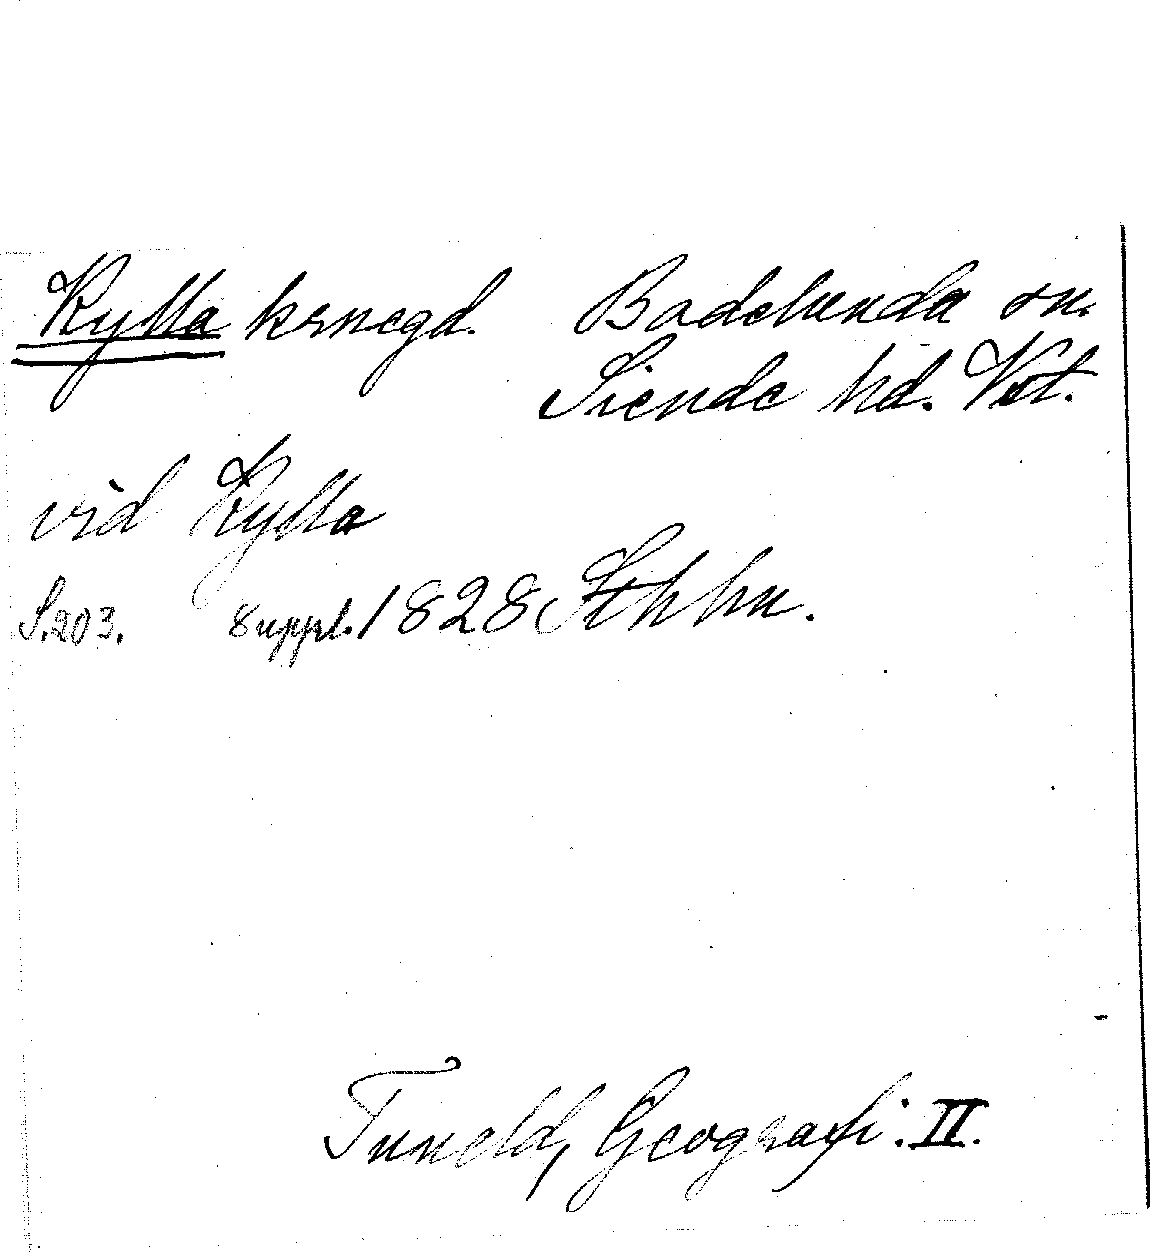 Kylla krnegd. Badelunda sn.
Siende hd. Vstl.
vid Kylla
S. 203. Suppl. 1828 Sthhm.
Tuneld, Geografi. II.